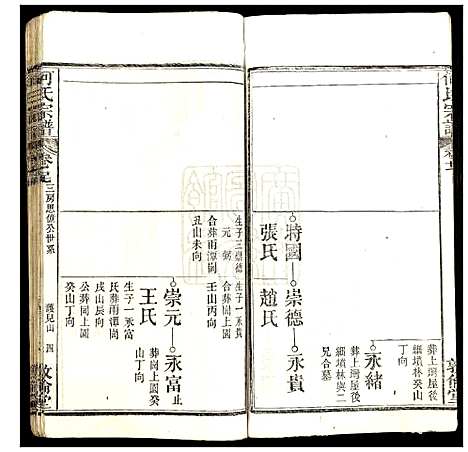 何氏宗譜
卷十五
葬上灣屋後
細墳林癸山
丁向
永緒
葬上灣屋後
細墳林與二
兄合墓
時國—崇德—永貴
張氏 趙氏
生子三崇德
元
合葬雨潭崗
丑山未向
生子一永貴
合葬岡上園
壬山丙向
崇元—永富止
王氏
葬岡上園癸
山丁向
生子一永富
氏葬雨潭崗
戌山辰向
公葬岡上園
癸山丁向
何氏宗譜
三房思億公世系
護兒山 四
敦倫堂
敦倫堂